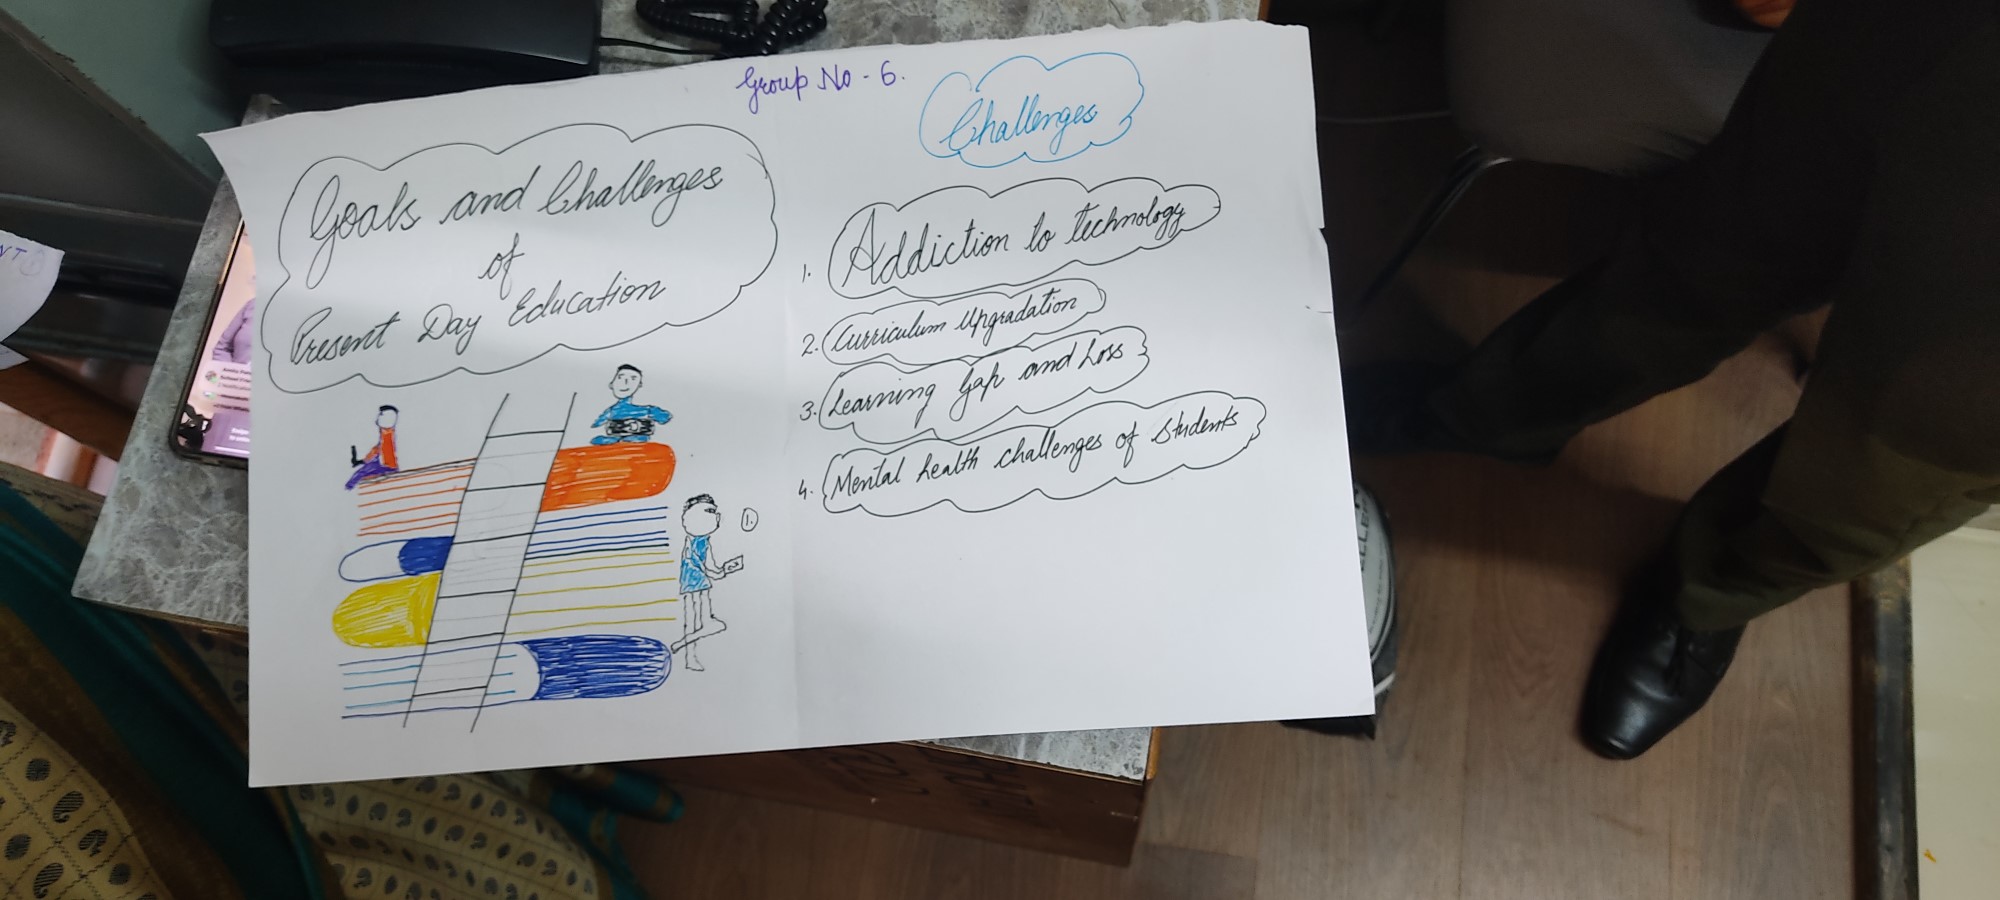 Group No - 6.
Goals and Challenges
of
Present Day Education
1.
Challenges
1. Addiction to technology
2. Curriculum Upgradation
3. Learning Gap and Loss
4. Mental health challenges of students